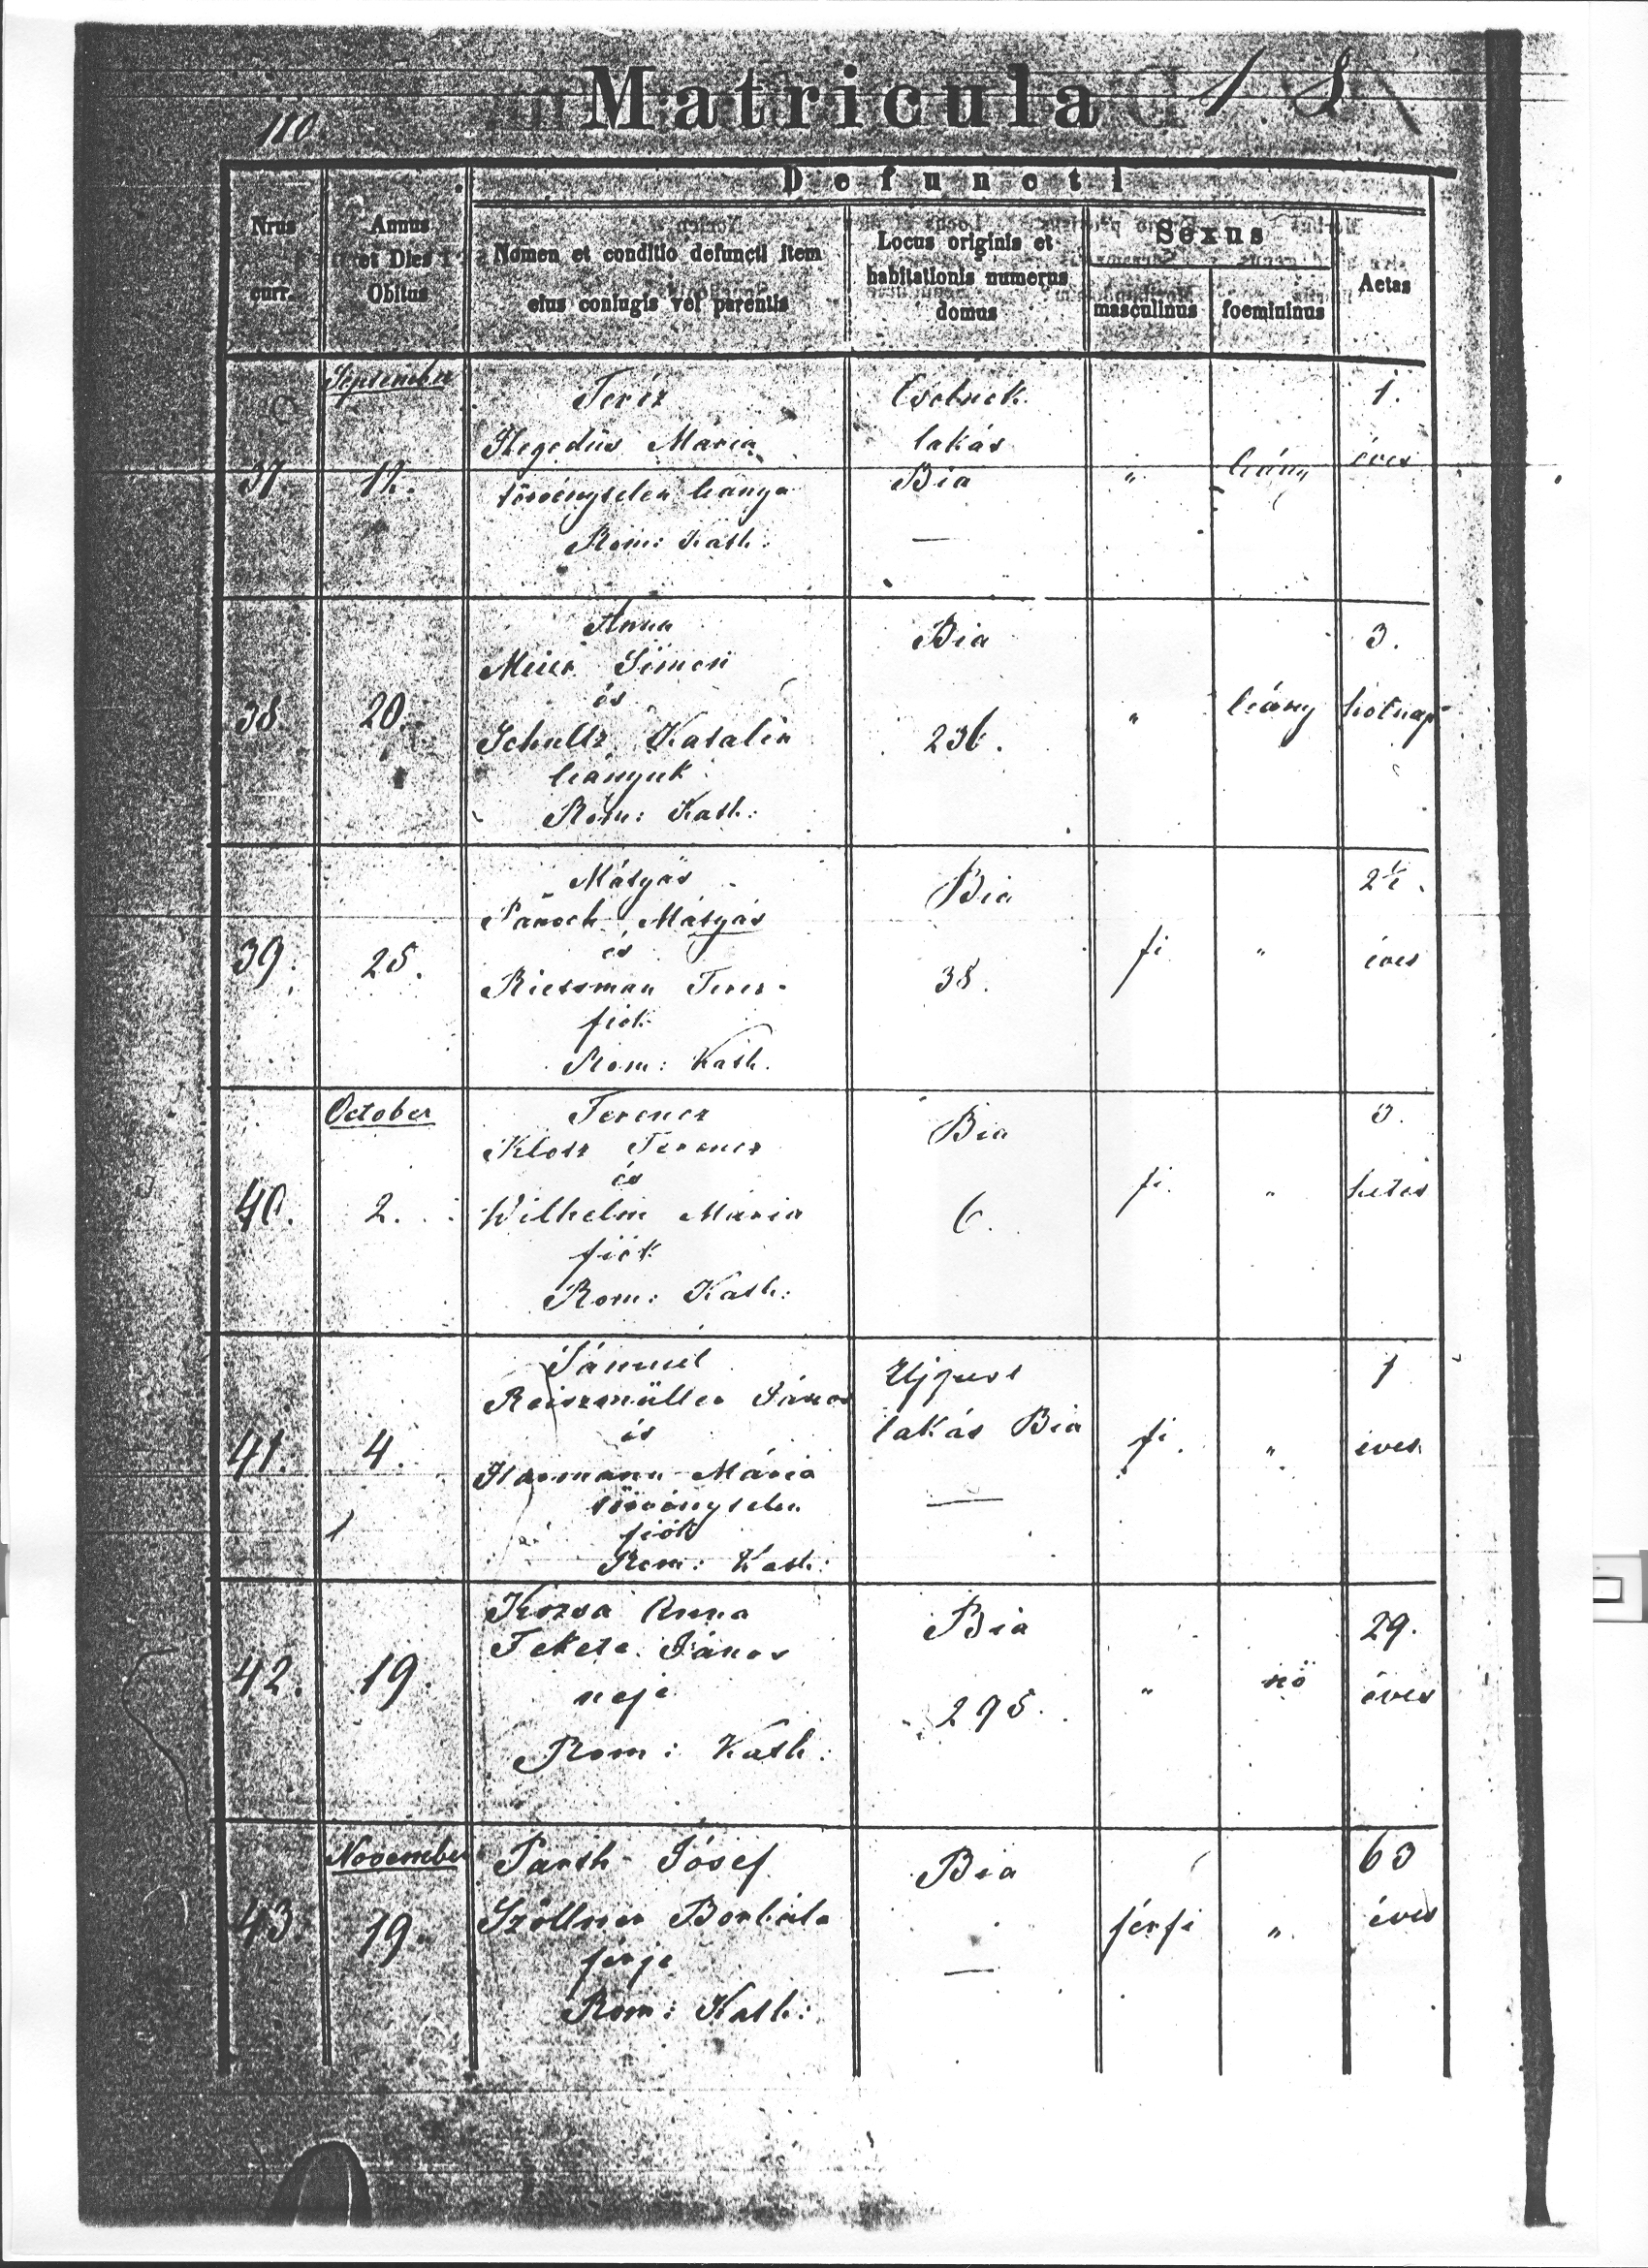 110.
Matricula
1 8
Defuncti
Nrus
curr.
Annus
et Dies
Obitus
Nomen et conditio defuncti item
eius coniugis vel parentis
Locus originis et
habitationis numerus
domus
Sexus
masculinus
foemininus
Aetas
September
37
12.
Teréz
Hegedüs Mária
törvénytelen leánya
Rom: Kath:
lakás
Bia
—
"
leány
1.
éves
38
20.
Anna
Meier Simon
és
Schultz Katalin
leányuk
Rom: Kath:
Bia
236.
"
leány
3.
hólnap
39.
25.
Mátyás
Mátyás
és
Riessman Terez
fiók
Rom: Kath.
Bia
38.
fi
"
2½.
éves
October
40.
2.
Ferencz
Klotz Ferencz
és
Wilhelm Mária
fiók
Rom: Kath:
Bia
6.
fi.
"
3.
hetes
41.
4.
Sámuel
Reiszmüller János
és
Mária
törvénytelen
fiók
Rom: Kath:
Ujpest
lakás Bia
—
fi.
"
1
éves
42.
19.
Kozsa Anna
Fekete János
neje
Rom: Kath:
Bia
295.
"
nő
29.
éves
November
43.
19.
Parth József
Szöllner Borbála
férje
Rom: Kath:
Bia
—
férfi
"
63
éves